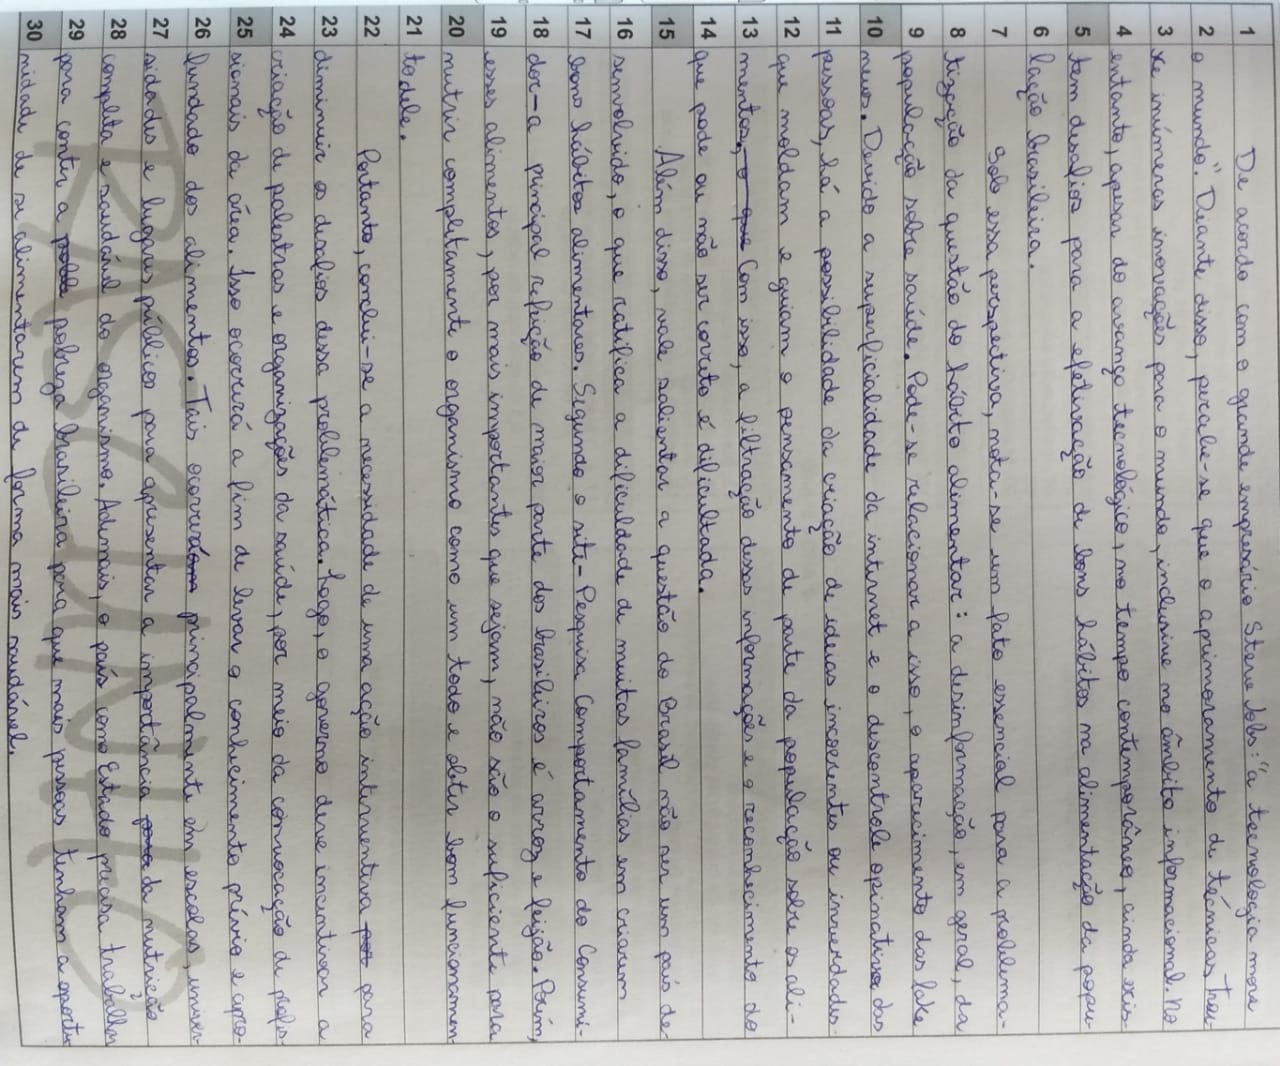 1 De acordo com o grande empresário Steve Jobs: "a tecnologia move
2 o mundo". Diante disso, percebe-se que o aprimoramento de técnicas, trou-
3 xe inúmeras inovações para o mundo, inclusive no âmbito informacional. No
4 entanto, apesar do avanço tecnológico, no tempo contemporâneo, ainda exis-
5 tem desafios para a efetivação de bons hábitos na alimentação da popu-
6 lação brasileira.
7 Sob essa perspectiva, nota-se um fato essencial para a problema-
8 tização da questão do hábito alimentar: a desinformação, em geral, da
9 população sobre saúde. Pode-se relacionar a isso, o aparecimento das fake
10 news. Devido a superficialidade da internet e o descontrole opinativo das
11 pessoas, há a possibilidade da criação de ideias incoerentes ou inverdades
12 que moldam e guiam o pensamento de parte da população sobre os ali-
13 mentos, o que Com isso, a filtração dessas informações e o reconhecimento do
14 que pode ou não ser correto é dificultada.
15 Além disso, vale salientar a questão do Brasil não ser um país de-
16 senvolvido, o que ratifica a dificuldade de muitas famílias em criarem
17 bons hábitos alimentares. Segundo o site- Pesquisa Comportamento do Consumi-
18 dor-a principal refeição de maior parte dos brasileiros é arroz e feijão. Porém,
19 esses alimentos, por mais importantes que sejam, não são o suficiente para
20 nutrir completamente o organismo como um todo e obter bom funcionamen-
21 to dele.
22 Portanto, conclui-se a necessidade de uma ação interventiva por para
23 diminuir os desafios dessa problemática. Logo, o governo deve incentivar a
24 criação de palestras e organizações da saúde, por meio da convocação de profis-
25 sionais da área. Isso ocorrerá a fim de levar o conhecimento prévio e apro-
26 fundado dos alimentos. Tais ocorrerão principalmente em escolas, univer-
27 sidades e lugares públicos para apresentar a importância para da nutrição
28 completa e saudável do organismo. Ademais, o país como Estado precisa trabalhar
29 para conter a pobreza brasileira para que mais pessoas tenham a oportu-
30 nidade de se alimentarem de forma mais saudável.
RASCUNHO